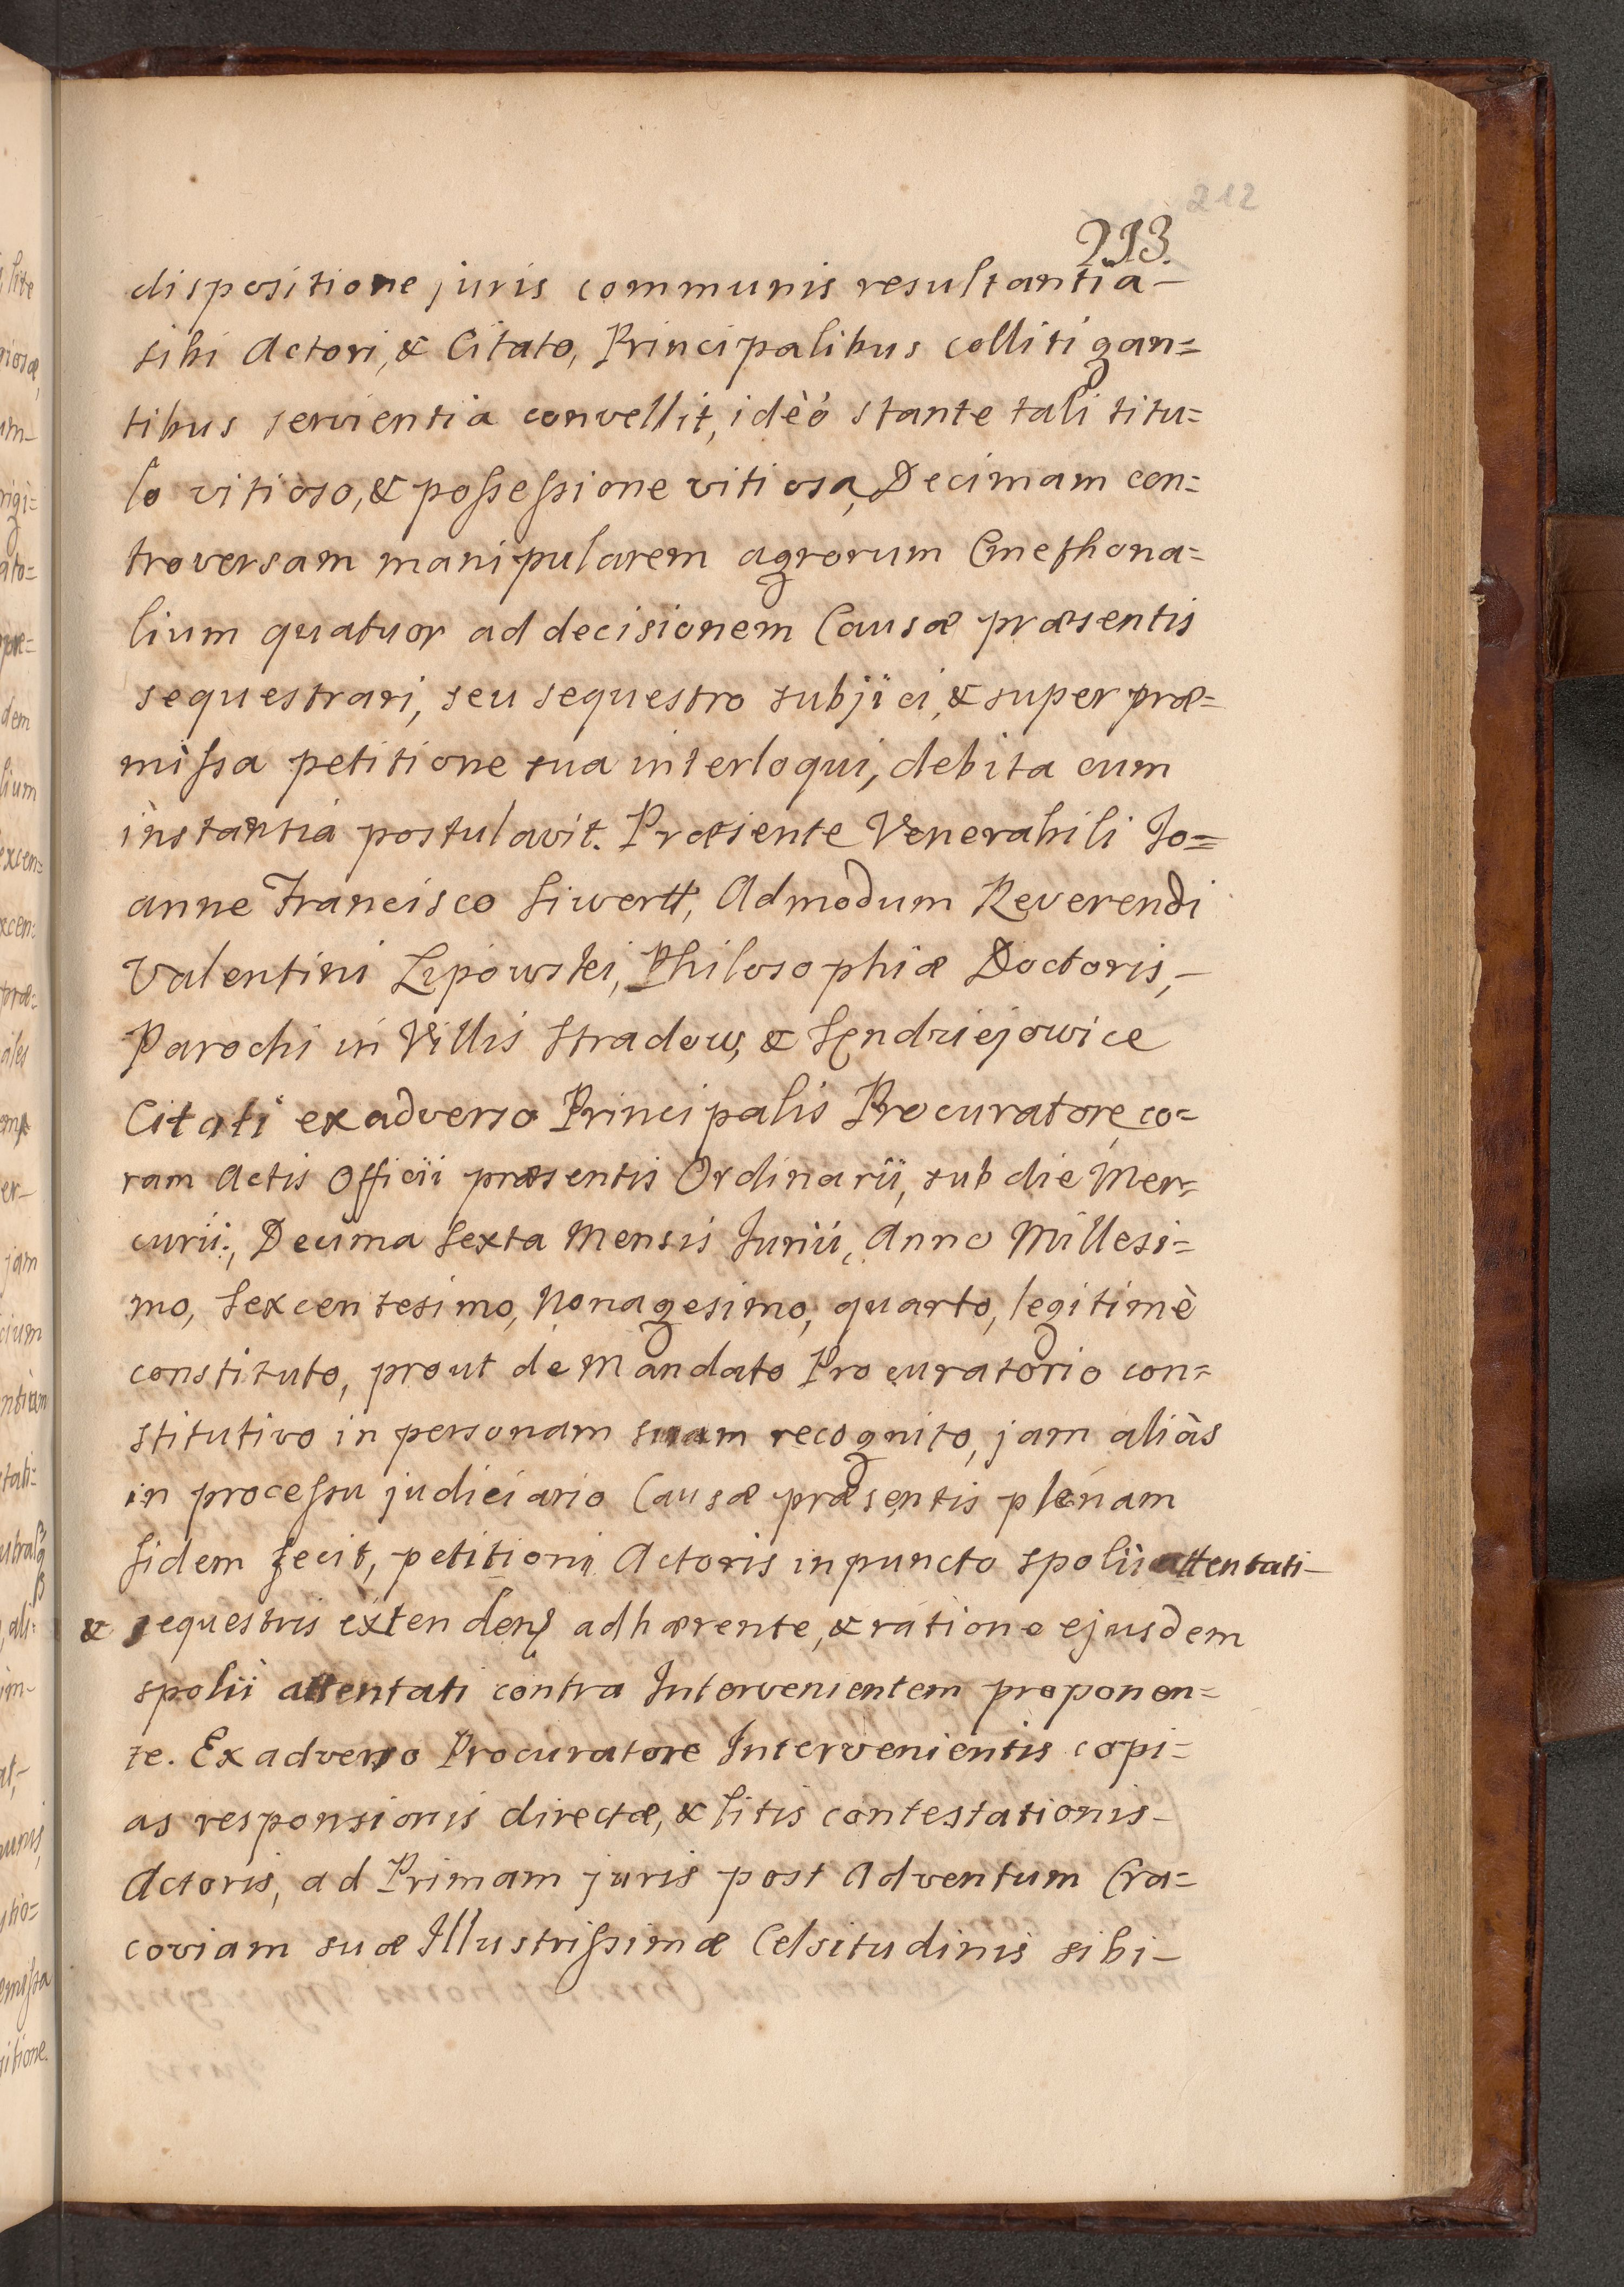 212
213.
dispositione juris communis resultantia —
sibi Actori, & Citato, Principalibus colliti gan=
tibus servientia convellit, idèó stante tali titu=
lo vitioso, & possessione vitiosa, Decimam con=
troversam manipularem agrorum Cmethona=
lium quatuor ad decisionem Causæ præsentis
sequestrari, seu sequestro subjici, & super præ=
missa petitione sua interloqui, debita cum
instantia postulavit. Præsente Venerabili Jo=
anne Francisco Siwertt, Admodum Reverendi
Valentini Lipowski, Philosophiæ Doctoris, —
Parochi in Villis Stradow, & Sendziejowice
Citati ex adverso Principalis Procuratore, co=
ram Actis Officii præsentis Ordinarii, sub die Mer=
curii, Decima Sexta Mensis Junii, Anno Millesi=
mo, Sexcentesimo, Nonagesimo, quarto, legitimè
constituto, prout de Mandato Procuratorio con=
stitutivo in personam suam recognito, jam aliàs
in processu judiciario Causæ præsentis plenam
fidem fecit, petitioni Actoris in puncto spolii attentati —
& sequestris extenden adhærente, & ratione ejusdem
spolii attentati contra Intervenientem proponen=
te. Ex adverso Procuratore Intervenientis copi=
as responsionis directæ, & litis contestationis —
Actoris, ad Primam juris post Adventum Cra=
coviam suæ Illustrissimæ Celsitudinis sibi —